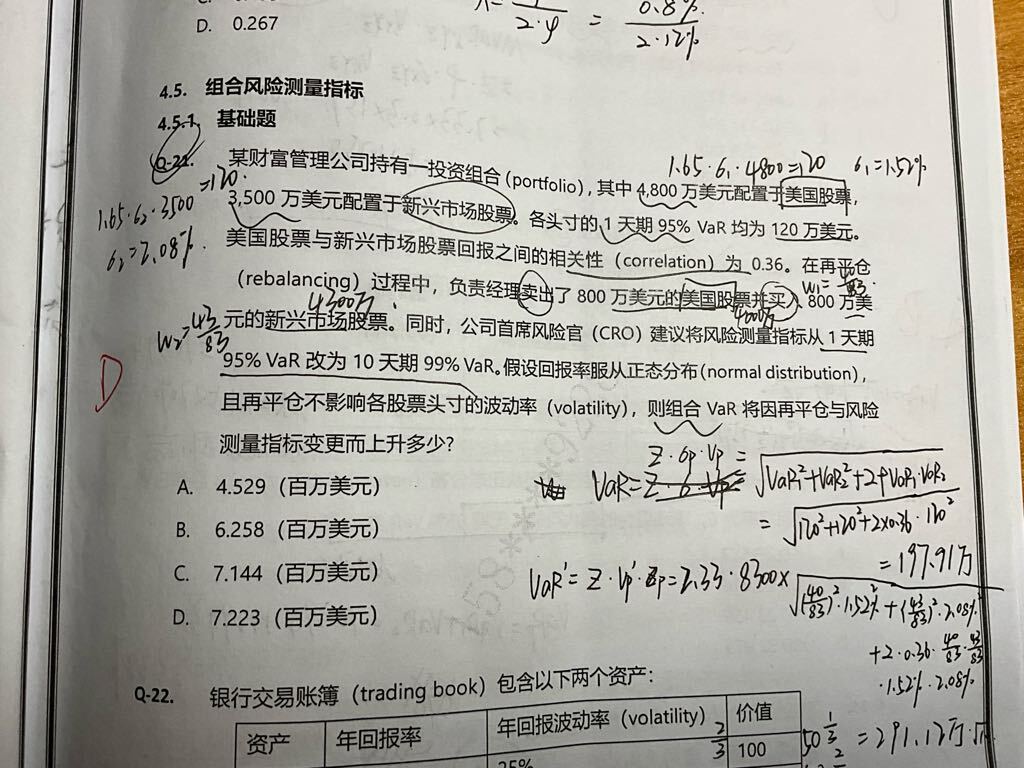 D. 0.267
2·φ = 0.8% / 2·12%
4.5. 组合风险测量指标
4.5.1. 基础题
Q-21. 某财富管理公司持有一投资组合(portfolio),其中 4,800 万美元配置于美国股票,
3,500 万美元配置于新兴市场股票。各头寸的 1 天期 95% VaR 均为 120 万美元。
美国股票与新兴市场股票回报之间的相关性（correlation）为 0.36。在再平仓
（rebalancing）过程中，负责经理卖出了 800 万美元的美国股票并买入 800 万美
元的新兴市场股票。同时，公司首席风险官（CRO）建议将风险测量指标从 1 天期
95% VaR 改为 10 天期 99% VaR。假设回报率服从正态分布(normal distribution),
且再平仓不影响各股票头寸的波动率（volatility），则组合 VaR 将因再平仓与风险
测量指标变更而上升多少?
A. 4.529（百万美元）
B. 6.258（百万美元）
C. 7.144（百万美元）
D. 7.223（百万美元）
1.65·σ1·4800=120 σ1=1.52%
1.65·σ2·3500
=120.
σ2=2.08%.
W1=40/83
4300万
4000万
W2=43/83
D
Z·σp·Vp =
VaR=
√VaR1²+VaR2²+2ρVaR1·VaR2
= √120²+120²+2×0.36·120²
= 197.91万
VaR'=Z·Vp'·σp=2.33·8300×
√(40/83)²·1.52%²+(43/83)²·2.08%²
+2·0.36·40/83·43/83
·1.52%·2.08%
=291.12万·√
Q-22. 银行交易账簿（trading book）包含以下两个资产：
资产 年回报率 年回报波动率（volatility） 价值
25% 100
2/3
50 1/3